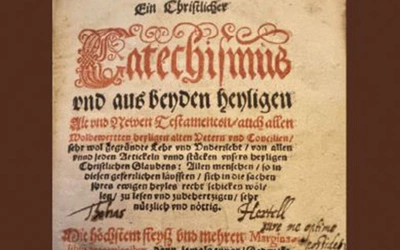 Ein Christlicher
Catechismus
vnd aus beyden heyligen
Alt vnd Newen Testamenten/ auch allen
Wolbewertten heyligen alten Vetern vnd Concilien/
sehr wol gegründte Lehr vnd Vnderricht/ von allen
vnnd jeden Artickeln vnnd stücken vnsers heyligen
Christlichen Glaubens: Allen menschen/ so in
diesen geferlichen läufften/ sich in die sachen
jhres ewigen heyles recht schicken wöl-
len/ zu lesen vnd zubehertzigen/ sehr
nützlich vnd nöttig.
Thomas Hertell
jure me optimo
Mit höchstem fleyß vnd mehren